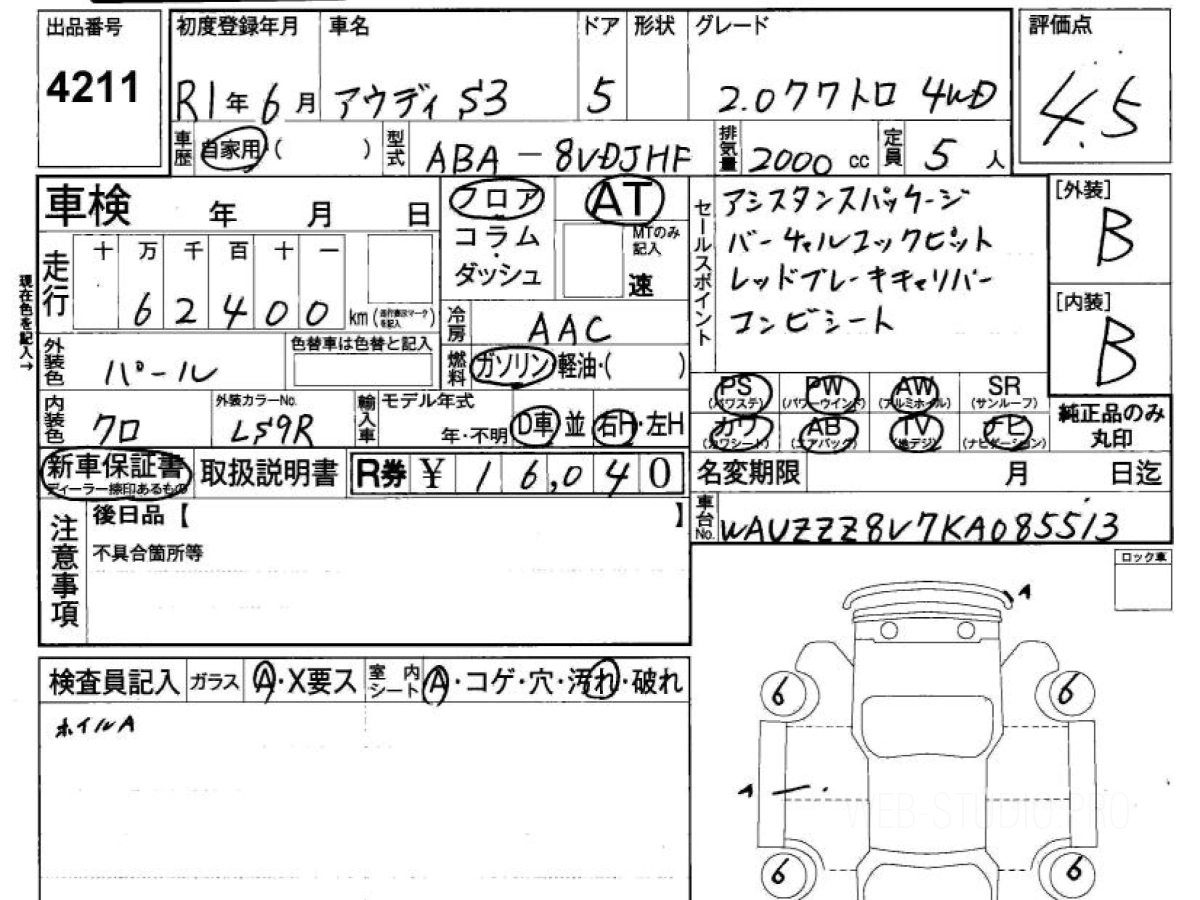 出品番号
4211
初度登録年月
R1年6月
車名
アウディ S3
ドア
5
形状
グレード
2.0クワトロ 4WD
評価点
4.5
車歴
自家用・( )
型式
ABA-8VDJHF
排気量
2000 cc
定員
5人
車検 年 月 日
走行
十 万 千 百 十 一
6 2 4 0 0 km
現在色を記入→
フロア
コラム
・
ダッシュ
AT
MTのみ
記入
速
冷房
AAC
燃料
ガソリン・軽油・( )
セールスポイント
アシスタンスパッケージ
バーチャルコックピット
レッドブレーキキャリパー
コンビシート
[外装]
B
[内装]
B
外装色
パール
色替車は色替と記入
内装色
クロ
外装カラーNo.
LS9R
輸入車
モデル年式
年・不明
D車 並
右H・左H
PS
(パワステ)
PW
(パワーウインド)
AW
(アルミホイル)
SR
(サンルーフ)
カワ
(カワシート)
AB
(エアバック)
TV
(地デジ)
ナビ
(ナビゲーション)
純正品のみ
丸印
新車保証書
ディーラー捺印あるもの
取扱説明書
R券 ¥ 1 6,0 4 0
名変期限 月 日迄
車台No.
WAUZZZ8V7KA085513
注意事項
後日品【 】
不具合箇所等
ロック車
検査員記入
ガラス
A・X要ス
室内
シート
A・コゲ・穴・汚れ・破れ
ホイルA
A
6
6
A
6
6
WEB-STUDIO.PRO